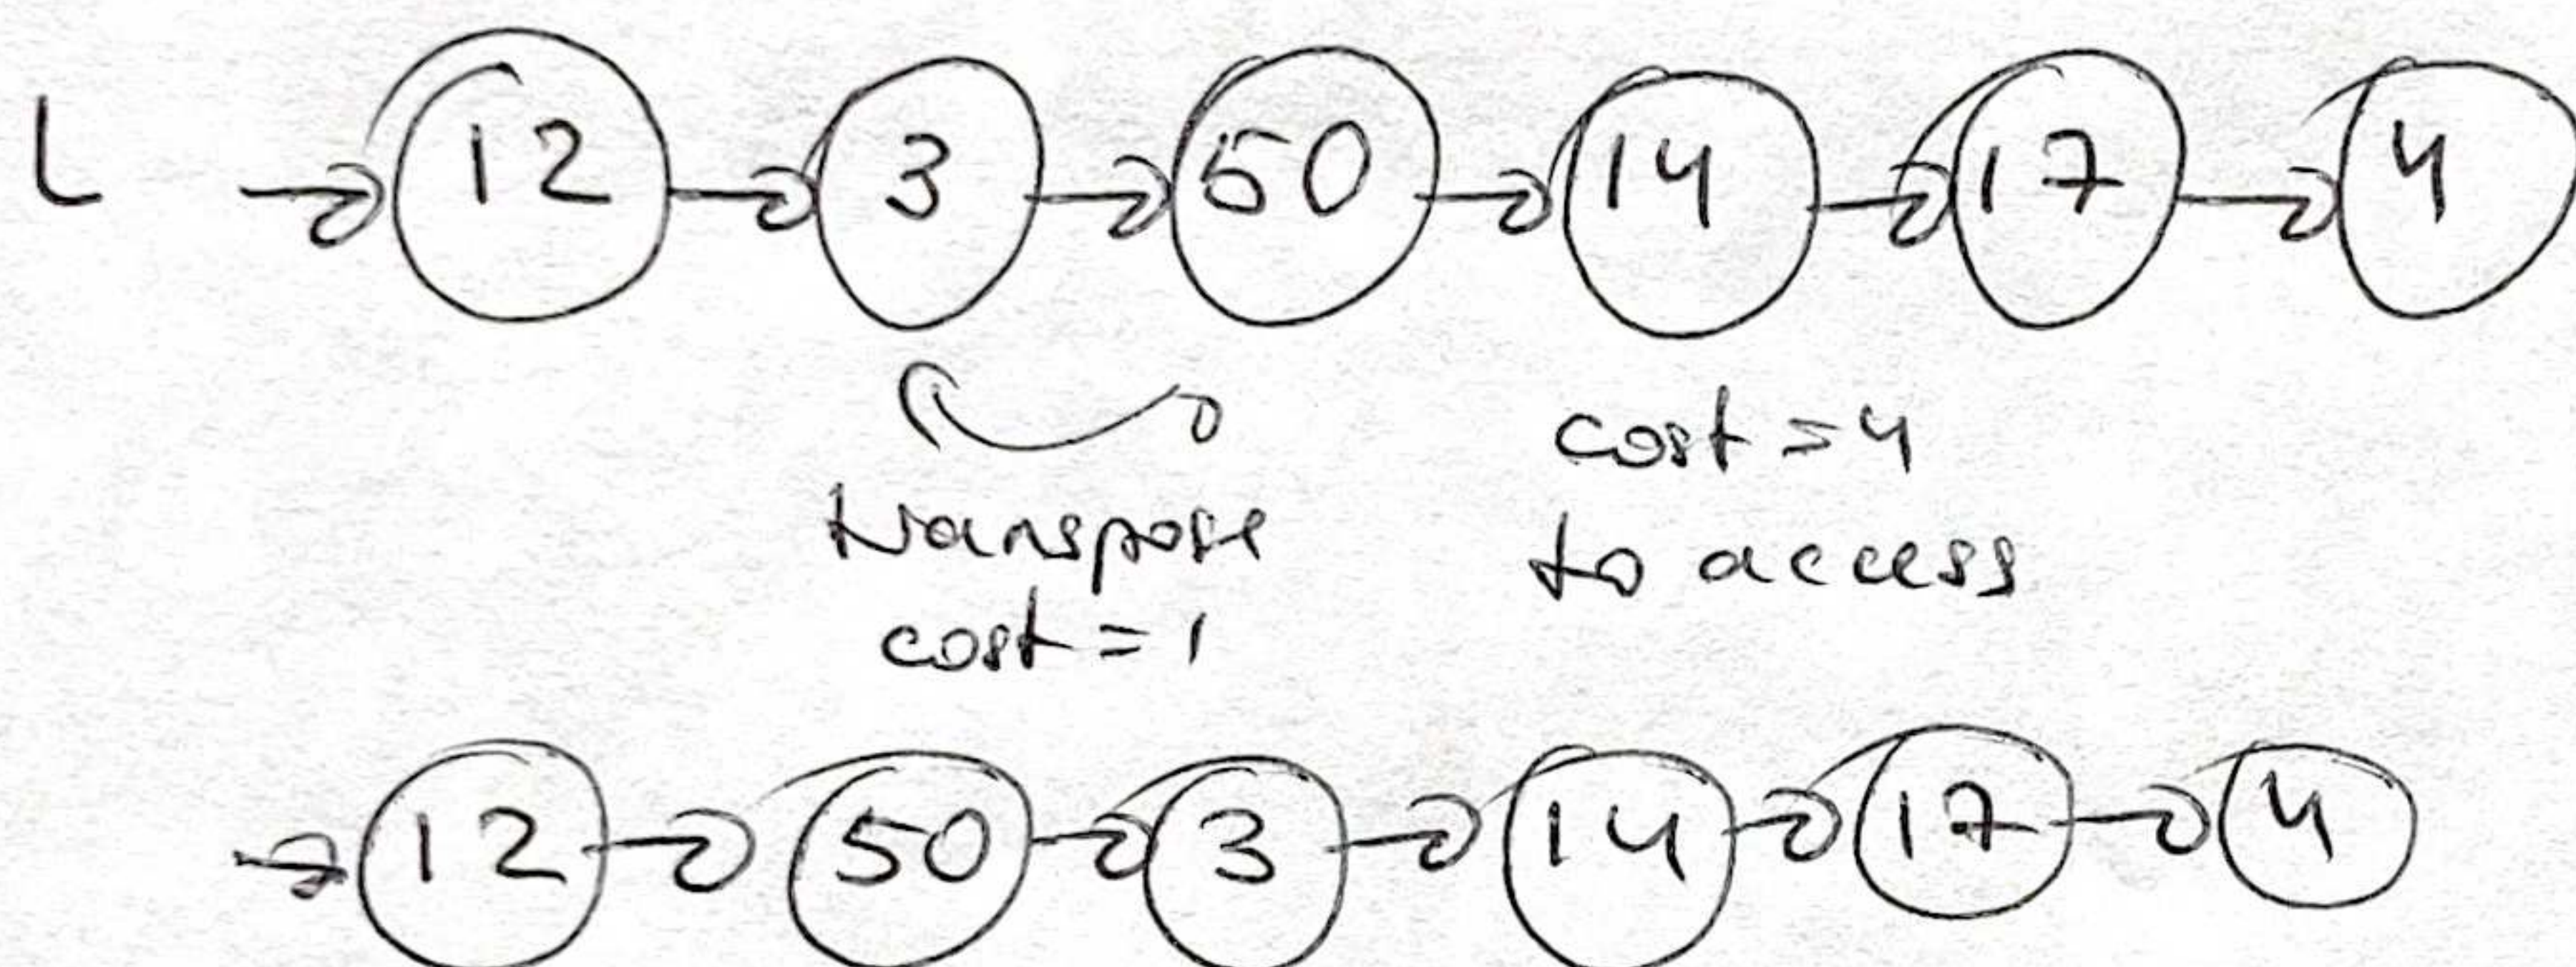 L → 12 → 3 → 50 → 14 → 17 → 4
transpose
cost = 1
cost = 4
to access
→ 12 → 50 → 3 → 14 → 17 → 4